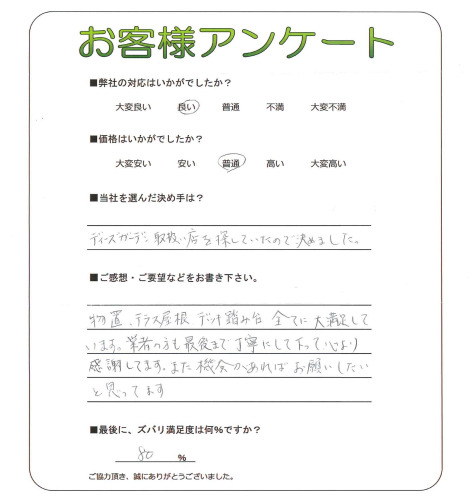 お客様アンケート
■弊社の対応はいかがでしたか?
大変良い 良い 普通 不満 大変不満
■価格はいかがでしたか?
大変安い 安い 普通 高い 大変高い
■当社を選んだ決め手は?
ディーズガーデン取扱い店を探していたので決めました。
■ご感想・ご要望などをお書き下さい。
物置、テラス屋根 デッキ踏み台 全てに大満足して
います。業者の方も最後まで丁寧にして下さって
感謝してます。また機会があればお願いしたい
と思ってます
■最後に、ズバリ満足度は何%ですか?
80 %
ご協力頂き、誠にありがとうございました。